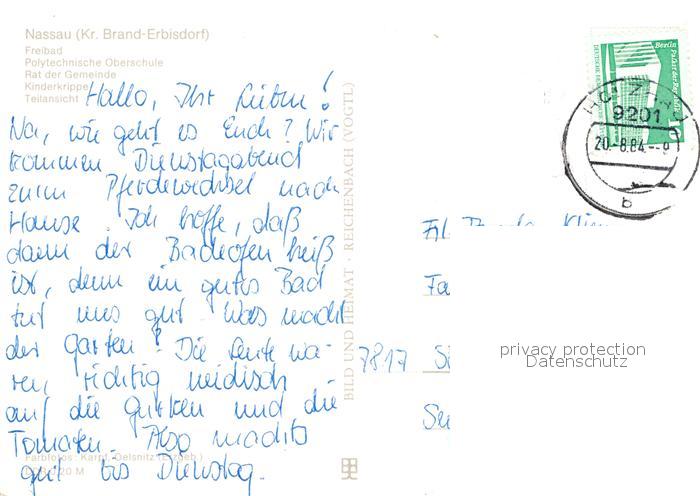 Nassau (Kr. Brand-Erbisdorf)
Freibad
Polytechnische Oberschule
Rat der Gemeinde
Kinderkrippe
Teilansicht
Hallo, Ihr Lieben!
Na, wie geht es Euch? Wir
kommen Dienstagabend
zum Pferdewechsel nach
Hause. Ich hoffe, daß
dann der Badeofen heiß
ist, denn ein gutes Bad
tut uns gut. Was macht
der Garten? Die Leute wa-
ren richtig neidisch
auf die Gurken und die
Tomaten. Also machts
gut bis Dienstag.
Farbfotos: Karpf, Oelsnitz (Erzgeb.)
20 M
BILD UND HEIMAT · REICHENBACH (VOGTL)
Berlin Palast der Republik
10
9201
20.-8.84.--9
b
7817
privacy protection
Datenschutz